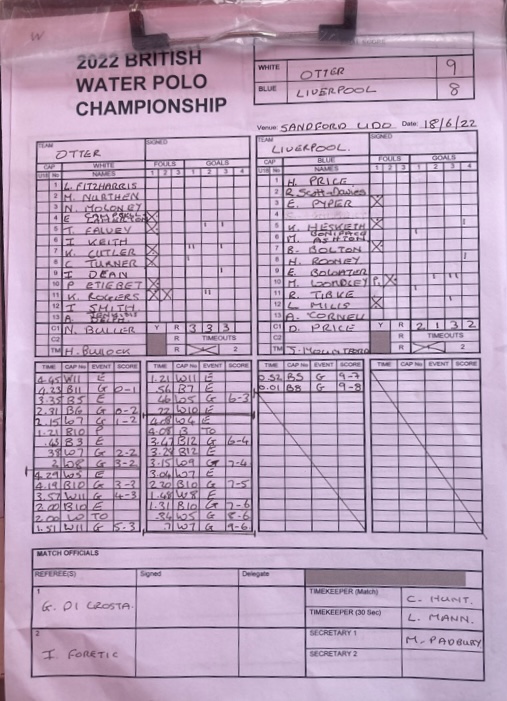 W
2022 BRITISH
WATER POLO
CHAMPIONSHIP
WHITE OTTER 9
BLUE LIVERPOOL 8
Venue: SANDFORD LIDO Date: 18/6/22
TEAM OTTER SIGNED
CAP WHITE FOULS GOALS
NAMES 1 2 3 1 2 3 4
1 L. FITZHARRIS
2 M. NURTHEN
3 N. MOLONEY
4 E
5 T. FALVEY
6 I KEITH
7 K. CUTLER
8 C. TURNER
9 I DEAN
10 P ETIEBET
11 K. ROGERS
12 I SMITH
13 A.
C1 N. BULLER Y R 3 3 3
C2 R TIMEOUTS
TM H. BULLOCK 2
TEAM LIVERPOOL. SIGNED
CAP BLUE FOULS GOALS
No NAMES 1 2 3 1 2 3 4
1 H. PRICE
2 R Scott-Davies
3 E. PYPER
4
5 K. HESKETH
6 M. ASHTON
7 B. BOLTON
8 H. ROONEY
9 E. BOLWATER
10 M. WORDLEY
11 R. TIBKE
12 L. MILLS
13 A. CORNELL
C1 D. PRICE Y R 2 1 3 2
C2 R TIMEOUTS
TM 2
TIME CAP No EVENT SCORE
4.45 W11 E
4.23 B11 G 0-1
3.35 B5 E
2.31 B6 G 0-2
2.15 W7 G 1-2
1.21 B10 P
.43 B3 E
38 W7 G 2-2
2 W8 G 3-2
4.29 W5 E
4.19 B10 G 3-3
3.57 W11 G 4-3
2.00 B10 E
2.00 W TO
1.51 W11 G 5-3
TIME CAP No EVENT SCORE
1.21 W11 E
.56 B7 E
46 W5 G 6-3
.22 W10 E
4.08 W4 E
4.08 B TO
3.47 B12 G 6-4
3.28 B12 E
3.15 W9 G 7-4
3.04 W7 E
2.20 B10 G 7-5
1.48 W8 E
1.31 B10 G 7-6
.34 W5 G 8-6
.7 W7 G 9-6
TIME CAP No EVENT SCORE
0.52 B5 G 9-7
0.01 B8 G 9-8
TIME CAP No EVENT SCORE
MATCH OFFICIALS
REFEREE(S) Signed Delegate
1 G. DI CROSTA.
TIMEKEEPER (Match) C. HUNT.
TIMEKEEPER (30 Sec) L. MANN.
2 I. FORETIC
SECRETARY 1 M. PADBURY
SECRETARY 2